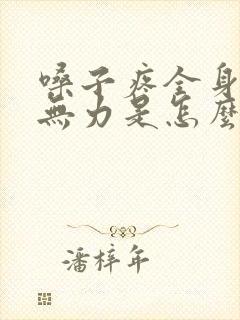 嗓子疼全身
無力是怎麼
潘梓年